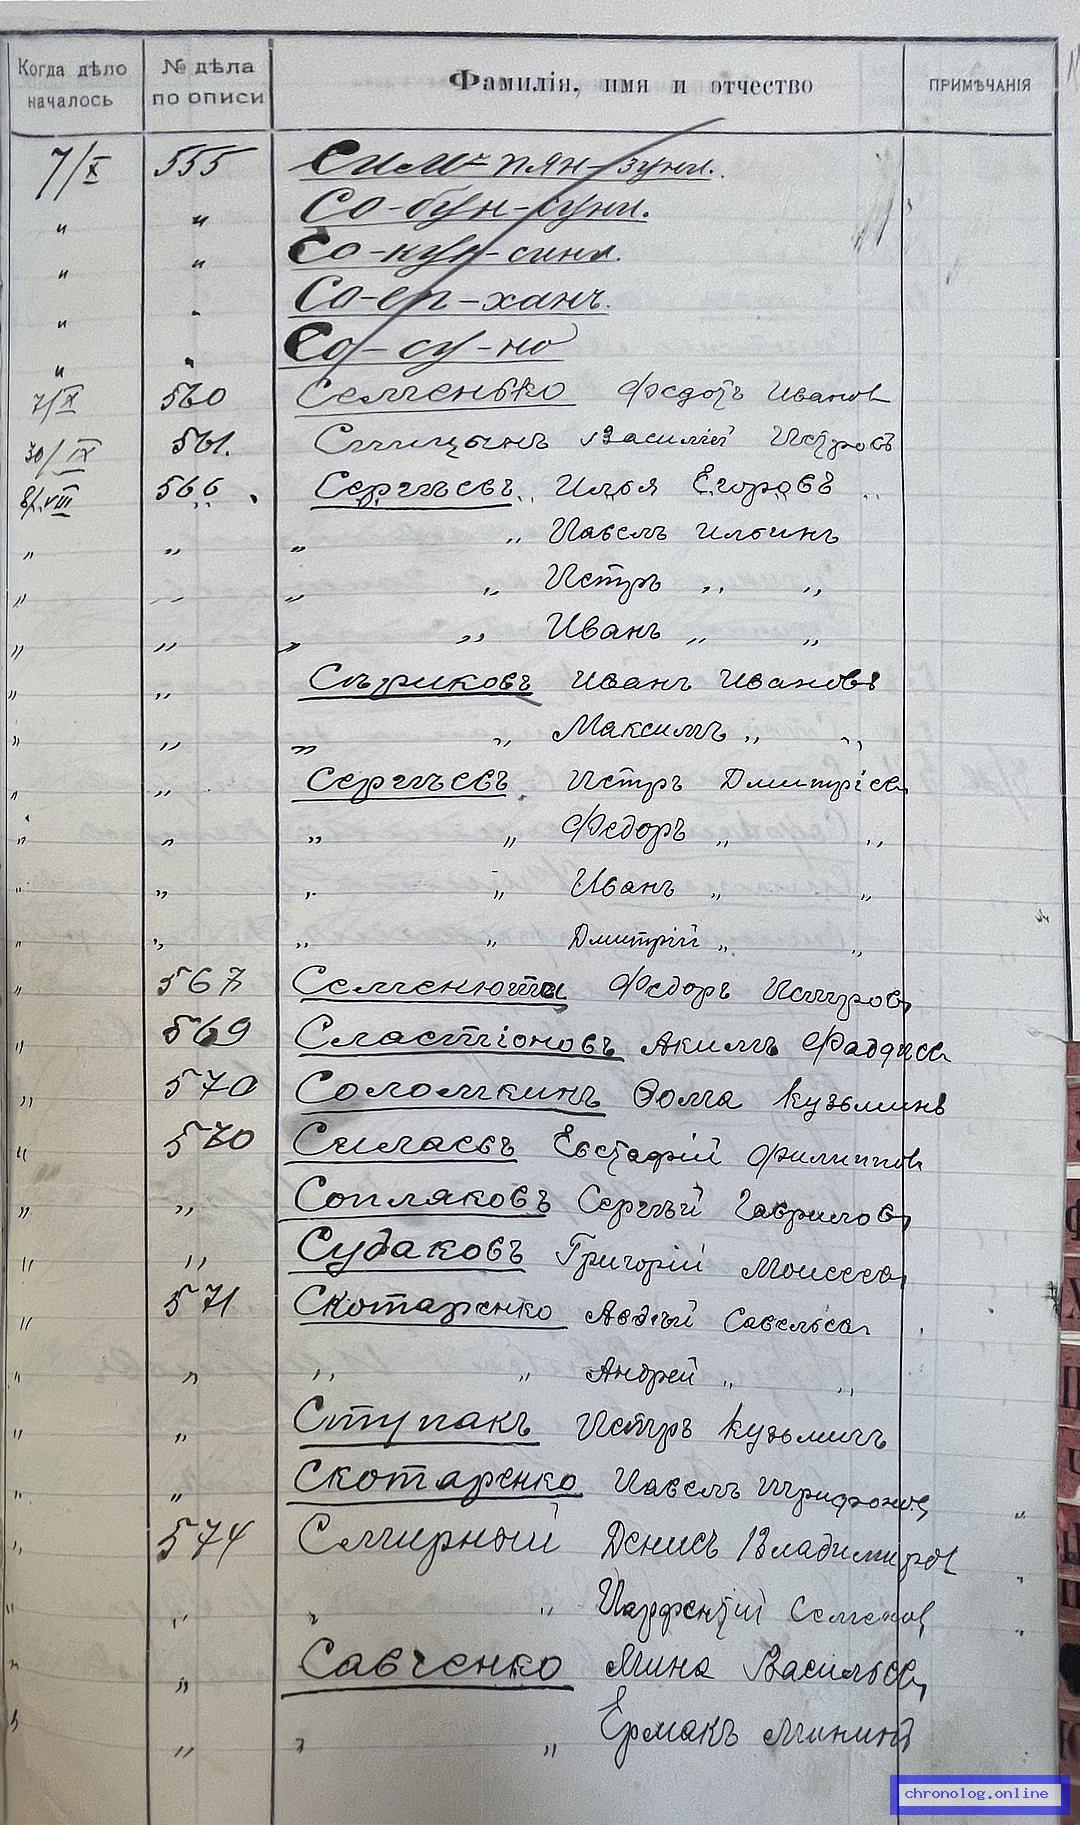 Когда дѣло началось № дѣла по описи Фамилія, имя и отчество ПРИМѢЧАНІЯ
7/X 555 Сим-пян-зунл.
" " Со-бун-сунл.
" " Со-кун-синл.
" " Со-ен-ханъ.
" " Со-су-но
7/X 560 Семенько Федотъ Иванов
30/IX 561. Синицынъ Василій Петровъ
8/VIII 566 Сергѣевъ Илья Егоровъ
" " " " Павелъ Ильинъ
" " " " Петръ " "
" " " " Иванъ " "
" " Сѣриковъ Иванъ Ивановъ
" " " " Максимъ " "
" " Сергѣевъ Петръ Дмитріев
" " " " Федоръ " "
" " " " Иванъ " "
" " " " Дмитрій " "
" 567 Семенюта Федоръ Петров
" 569 Сластіоновъ Акимъ Фаддѣев
" 570 Соломкинъ Ѳома Кузьминъ
" 570 Силаевъ Евстафій Филиппов
" " Сопляковъ Сергѣй Гаврилов
" " Судаковъ Григорій Моисеев
" 571 Скотаренко Авдѣй Савельев
" " " " Андрей " "
" " Ступакъ Петръ Кузьмичъ
" " Скотаренко Павелъ Трифонов
" 574 Смирный Денисъ Владимиров
" " " " Парфентій Семенов
" " Савченко Мина Васильев
" " " " Ермакъ Мининъ
chronolog.online